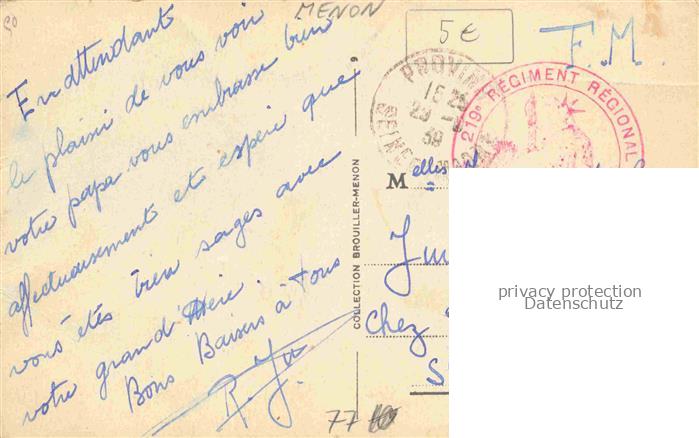 50
MENON
5€
F.M.
En attendant
le plaisir de vous voir
votre papa vous embrasse bien
affectueusement et espère que
vous êtes bien sages avec
votre grand'Mère.
Bons Baisers à Tous
PROVINS
SEINE
39
219e RÉGIMENT RÉGIONAL
COLLECTION BROUILLER-MENON
9
Melles
Chez
77
privacy protection
Datenschutz